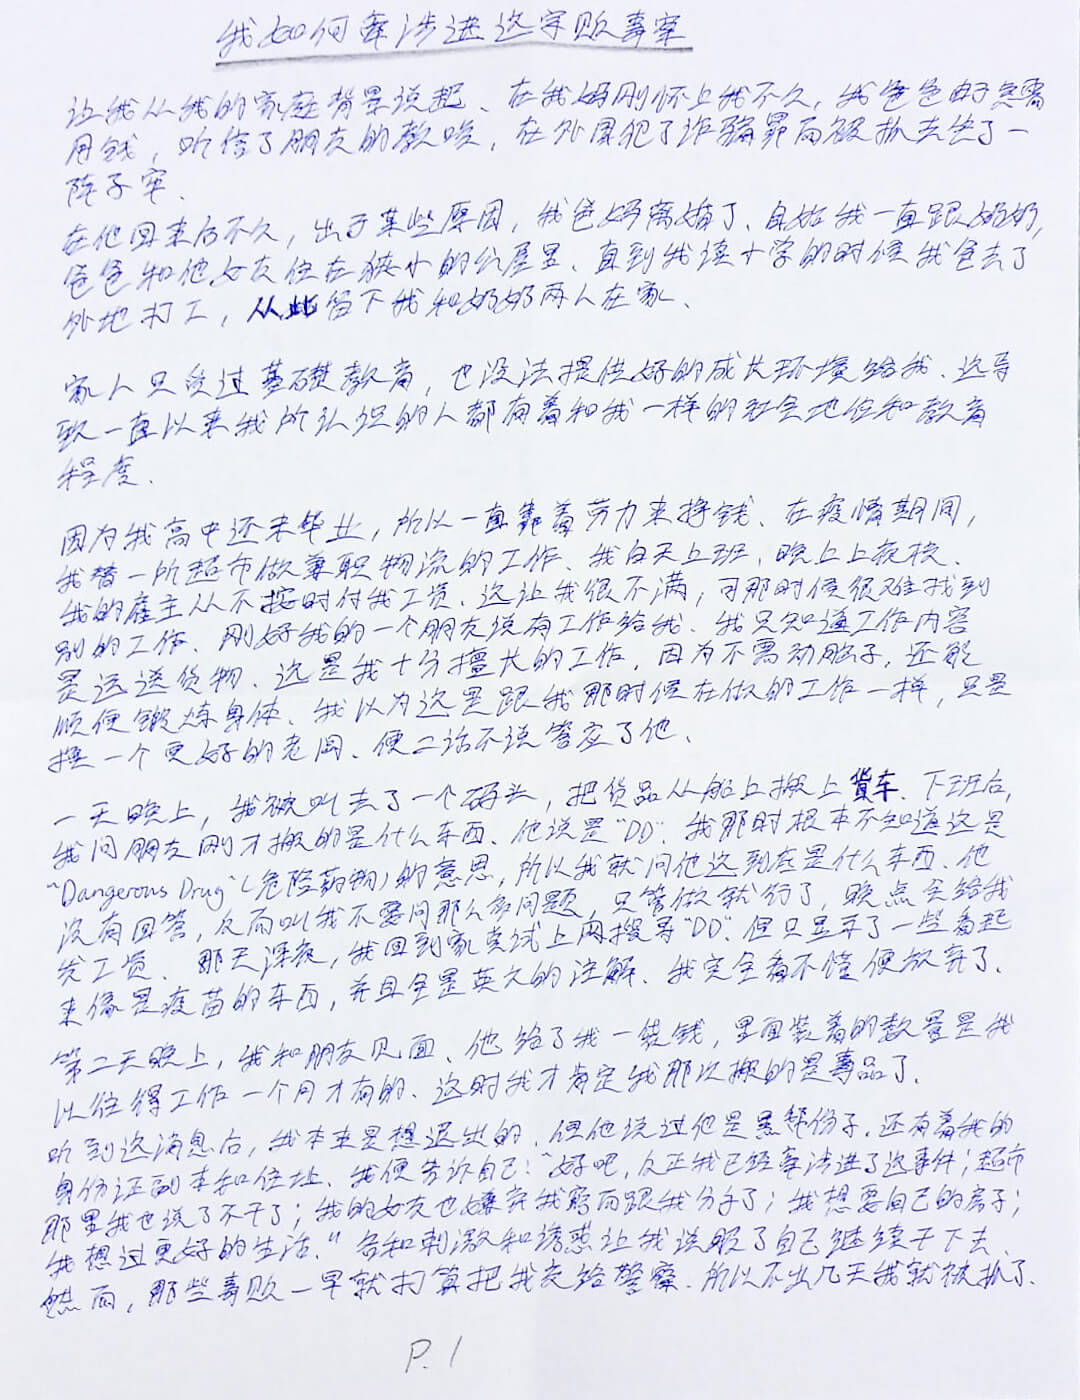 我如何牵涉进这宗贩毒案
让我从我的家庭背景说起、在我妈刚怀上我不久，我爸爸由于急需
用钱，听信了朋友的教唆，在外围犯了诈骗罪而被抓去坐了一
阵子牢.
在他回来后不久，出于某些原因，我爸妈离婚了、自始我一直跟奶奶,
爸爸和他女友住在狭小的公屋里、直到我读十字的时候我爸去了
外地打工，从此留下我和奶奶两人在家、
家人只受过基礎教育，也没法提供好的成长环境给我、这导
致一直以来我所认识的人都有着和我一样的社会地位和教育
程度、
因为我高中还未毕业，所以一直靠着劳力来挣钱、在疫情期间，
我替一所超市做兼职物流的工作、我白天上班，晚上上夜校、
我的雇主从不按时付我工资、这让我很不满，可那时候很难找到
别的工作、刚好我的一个朋友说有工作给我、我只知道工作内容
是运送货物、这是我十分擅长的工作，因为不需动脑子，还能
顺便锻炼身体、我以为这是跟我那时候在做的工作一样，只是
换一个更好的老闆、便二话不说答应了他、
一天晚上，我被叫去了一个码头，把货品从船上搬上貨车、下班后,
我问朋友刚才搬的是什么东西、他说是"DD"、我那时根本不知道这是
"Dangerous Drug"(危险药物)的意思，所以我就问他这到底是什么东西、他
没有回答，反而叫我不要问那么多问题，只管做就行了，晚点会给我
发工资、那天深夜，我回到家尝试上网搜寻"DD"、但只显示了一些看起
来像是疫苗的东西，并且全是英文的注解、我完全看不懂便放弃了、
第二天晚上，我和朋友见面、他给了我一袋钱，里面装着的数量是我
以往得工作一个月才有的、这时我才肯定我那次搬的是毒品了、
听到这消息后，我本来是想退出的、但他说过他是黑帮份子、还有着我的
身份证副本和住址、我便告诉自己:"好吧，反正我已经牵涉进了这事件；超市
那里我也说了不干了；我的女友也嫌弃我窮而跟我分手了；我想要自己的房子；
我想过更好的生活."各种刺激和诱惑让我说服了自己继续干下去、
然而，那些毒贩一早就打算把我交给警察、所以不出几天我就被抓了、
P.1